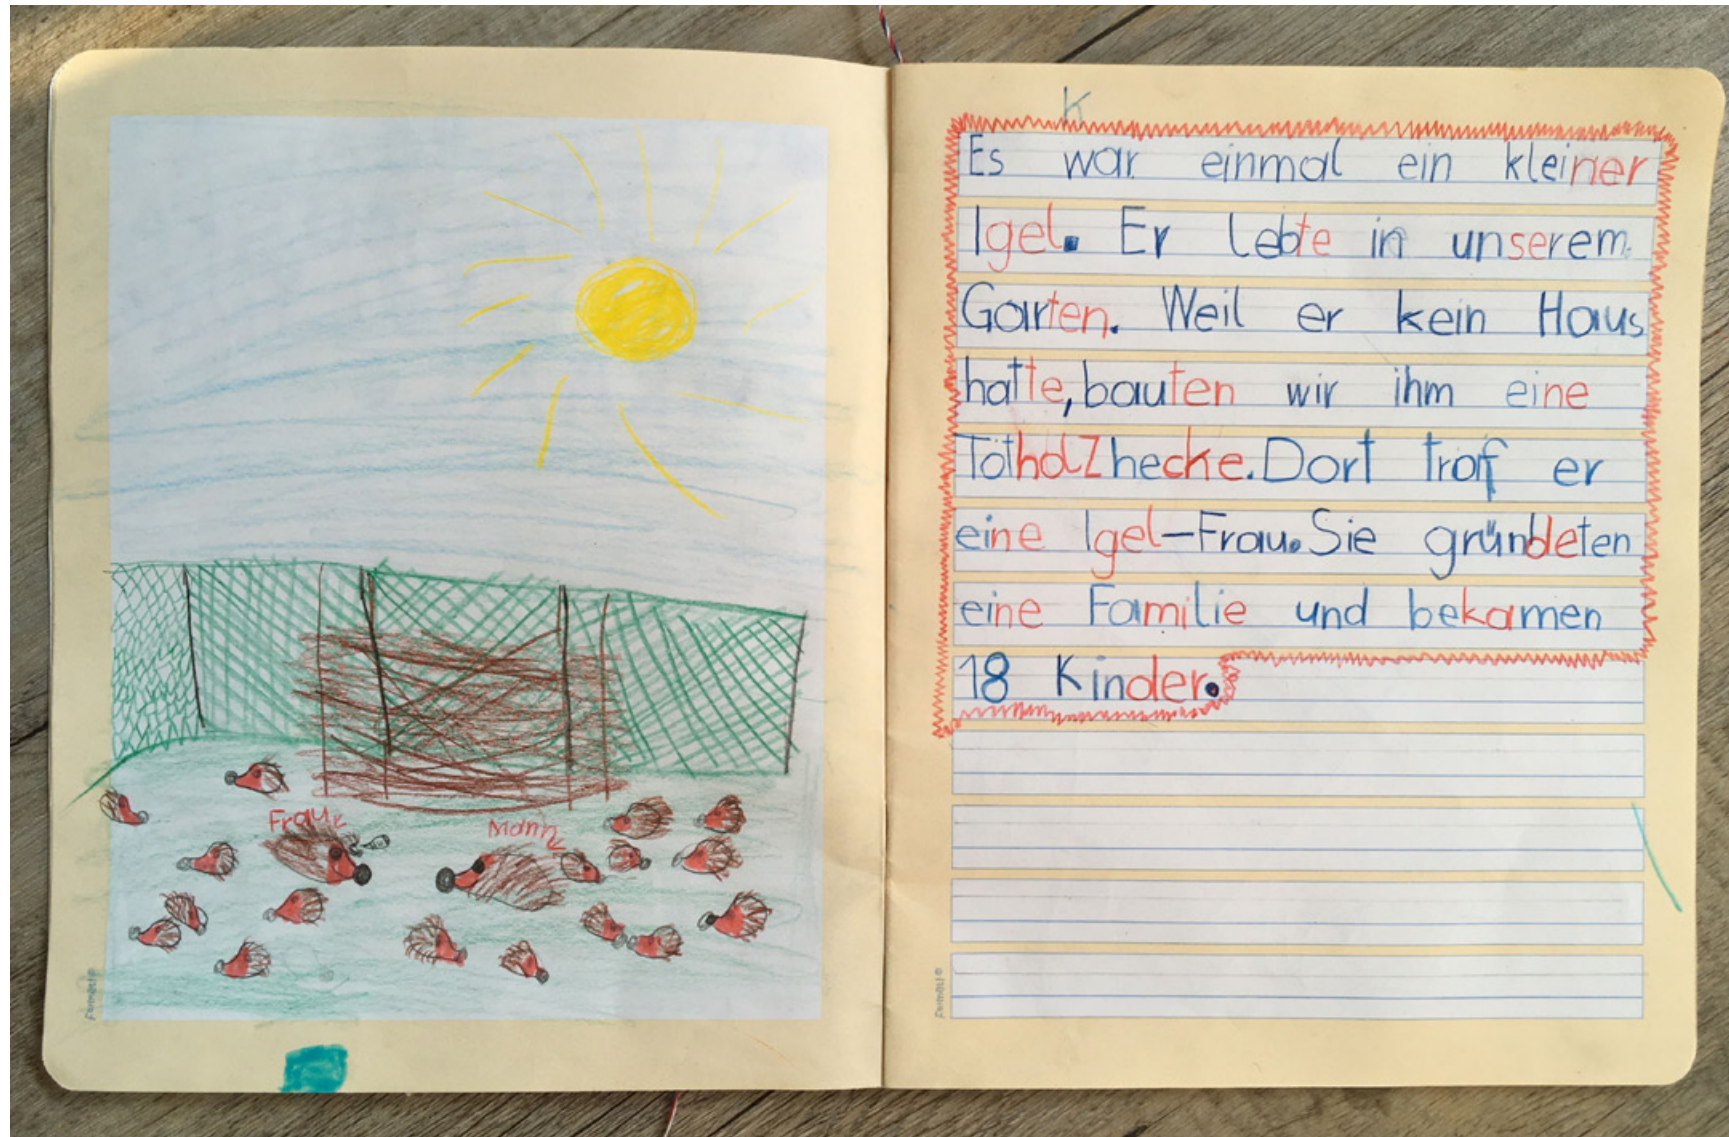 Frau
Mann
K
Es war einmal ein kleiner
Igel. Er lebte in unserem
Garten. Weil er kein Haus
hatte, bauten wir ihm eine
TotholZhecke. Dort traf er
eine Igel-Frau. Sie gründeten
eine Familie und bekamen
18 Kinder.